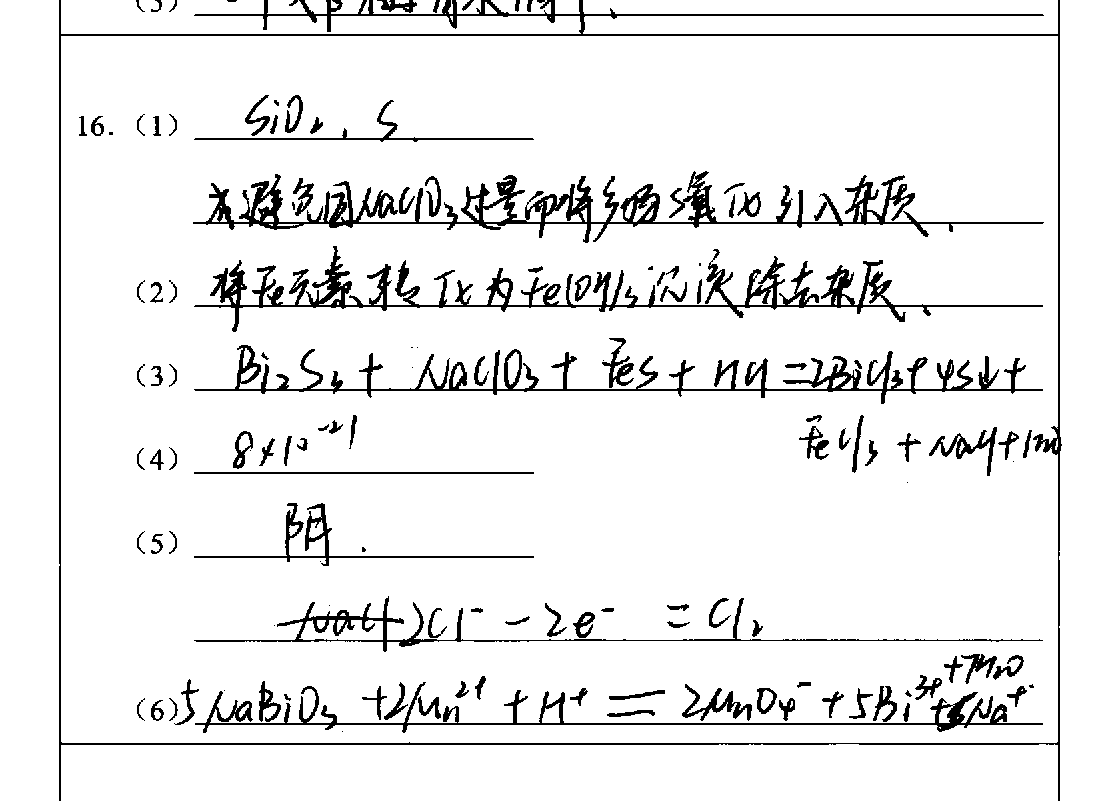 (3)
16.（1） SiO₂、S.
避免因NaClO₃过量而将多 氧化引入杂质.
（2） 将Fe元素转化为Fe(OH)₃沉淀除去杂质.
（3） Bi₂S₃ + NaClO₃ + FeS + HCl = 2BiCl₃ + 4S↓ +
FeCl₃ + NaCl + H₂O
（4） 8×10⁻²¹
（5） 阴.
2Cl⁻ - 2e⁻ = Cl₂
（6）5NaBiO₃ + 2Mn²⁺ + H⁺ = 2MnO₄⁻ + 5Bi³⁺ + 5Na⁺ + 7H₂O